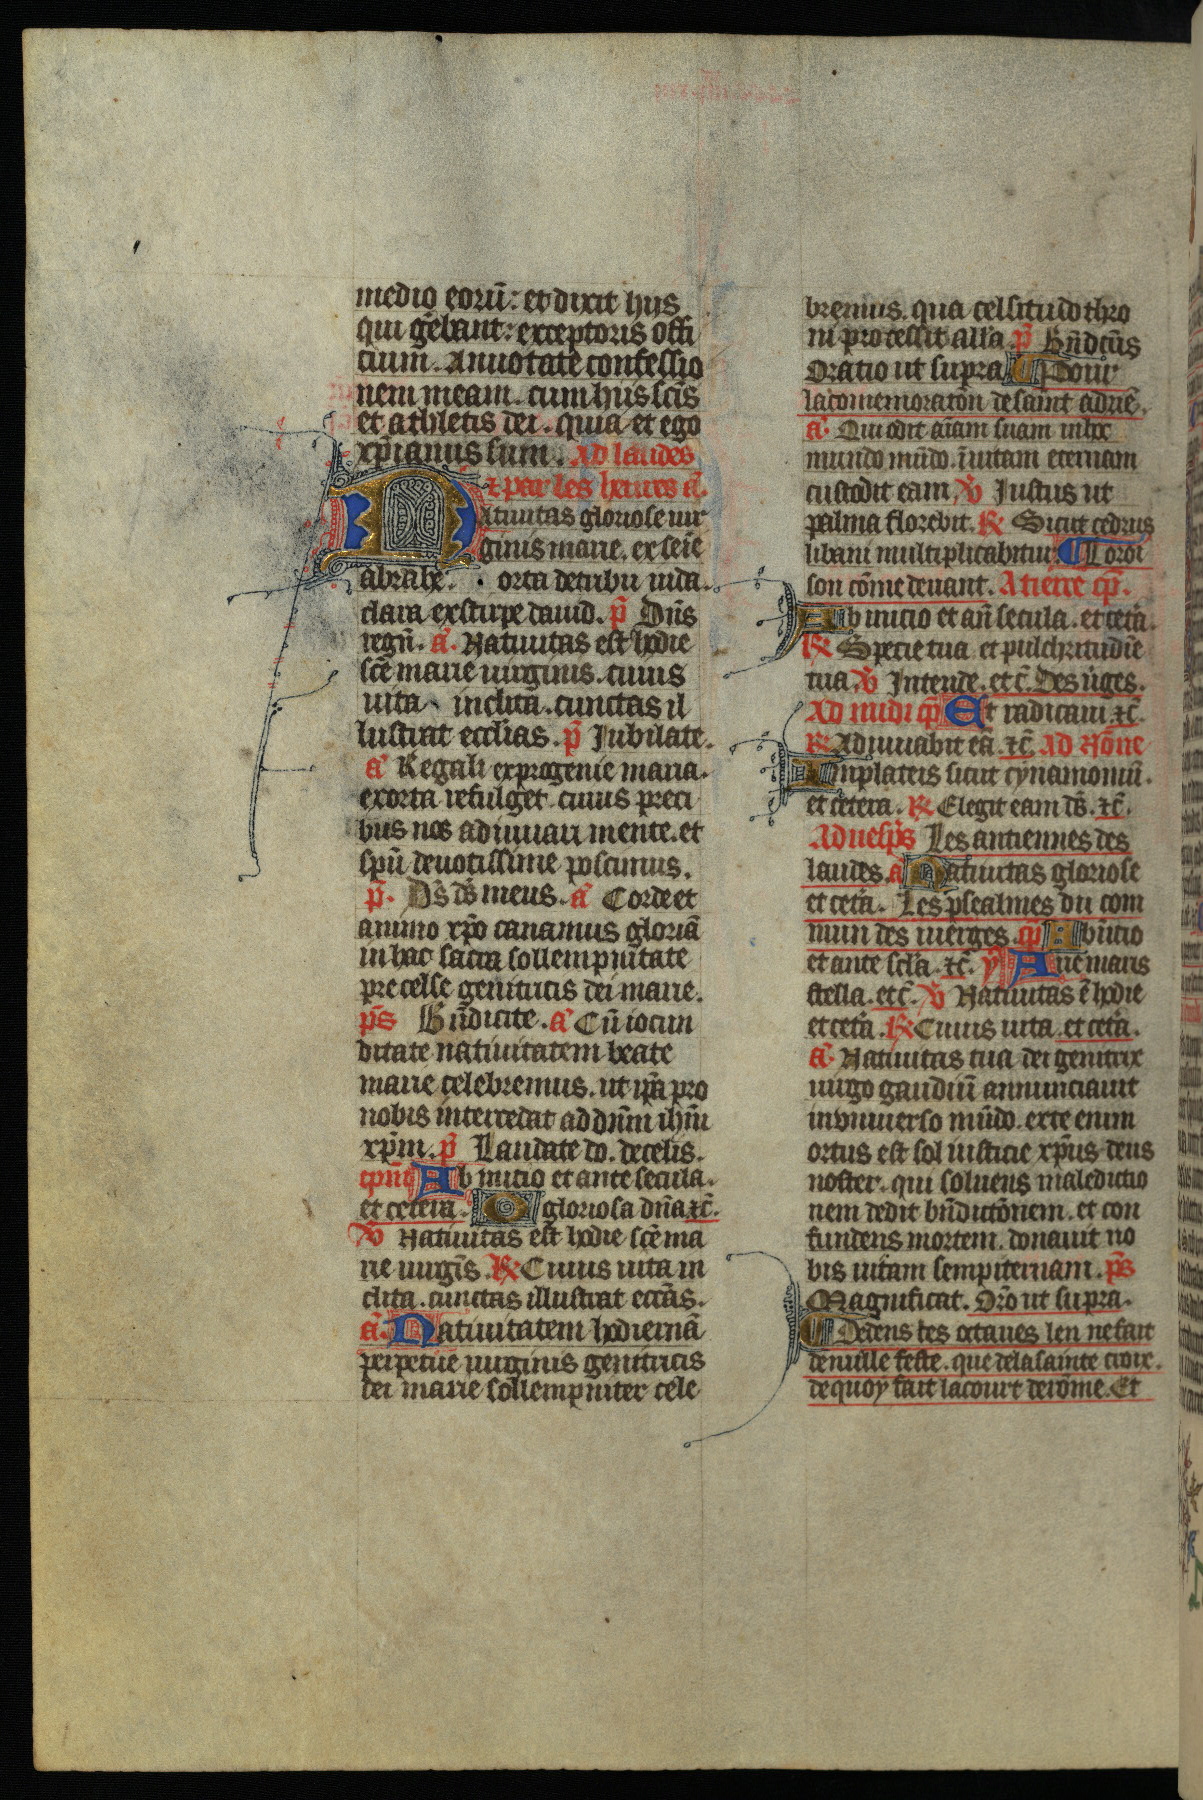 medio eoru̅: et dixit hijs
qui ge̅bant: exceptoris offi
cium. Annotate confessio
nem meam. cum hijs sc̅is
et athletis dei. quia et ego
xp̅ianus sum. Ad laudes
⁊ par les heures a̅.
Natiuitas gloriose uir
ginis marie. ex sei̅e
abrahe. orta de tribu iuda.
clara ex stirpe dauid. p̅ Dn̅s
regn̅. a̅. Natiuitas est hodie
sc̅e marie uirginis. cuius
uita inclita. cunctas il
lustrat eccl̅ias. p̅ Jubilate.
a̅ Regali ex progenie maria.
exorta refulget. cuius preci
bus nos adiuuari mente. et
spu̅ deuotissime poscimus.
p̅. Ds̅ ds̅ meus. a̅ Corde et
animo xp̅o canamus gloria̅
in hac sacra sollempnitate
precelse genitricis dei marie.
ps̅ Bn̅dicite. a̅ Cu̅ iocun
ditate natiuitatem beate
marie celebremus. ut ip̅a pro
nobis intercedat ad dn̅m ih̅m
xp̅m. p̅ Laudate do. de celis.
Ab initio et ante secula.
et cetera. O gloriosa dn̅a ⁊c̅.
v̅ Natiuitas est hodie sc̅e ma
rie uirgi̅s. R̅ Cuius uita in
clita. cunctas illustrat ecc̅as.
a̅. Natiuitatem hodierna̅
perpetue uirginis genitricis
dei marie sollempniter cele
bremus. qua celsitudo thro
ni processit all̅a. p̅ Bn̅dct̅us
Oratio ut supra ¶ Pour
la comemorato̅n de saint adrie̅.
a̅. Qui odit ai̅am suam in hoc
mundo mu̅do. i̅ uitam eternam
custodit eam. v̅ Justus ut
palma florebit. R̅ Sicut cedrus
libani multiplicabitur ¶ Loroi
son co̅me deuant. A tierce cp̅.
Ab initio et an̅ secula. et cete̅a.
R̅ Specie tua et pulchritudi̅e
tua. v̅ Intende. et c̅. Des u̅ges.
Ad midi cp̅ Et radicaui ⁊c̅.
R̅ Adiuuabit ea̅. ⁊c̅. Ad No̅ne
In plateis sicut cynamomu̅.
et cetera. R̅ Elegit eam ds̅. ⁊c̅.
Ad uesp̅s Les antiennes des
laudes. a̅ Natiuitas gloriose
et cete̅a. Les psealmes du com
mun des uierges. cp̅ Ab initio
et ante scl̅a. ⁊c̅. y̅ Aue maris
stella. et c̅. v̅ Natiuitas e̅ hodie
et cete̅a. R̅ Cuius uita et cete̅a.
a̅. Natiuitas tua dei genitrix
uirgo gaudiu̅ annunciauit
in vniuerso mu̅do. ex te enim
ortus est sol iusticie xp̅us deus
noster. qui soluens maledictio
nem dedit bn̅dicto̅nem. et con
fundens mortem. donauit no
bis uitam sempiternam. ps̅
Magnificat. Oro̅ ut supra.
¶ Dedens les octaues len ne fait
de nulle feste. que de la sainte croix.
de quoy fait la court de ro̅me. Et